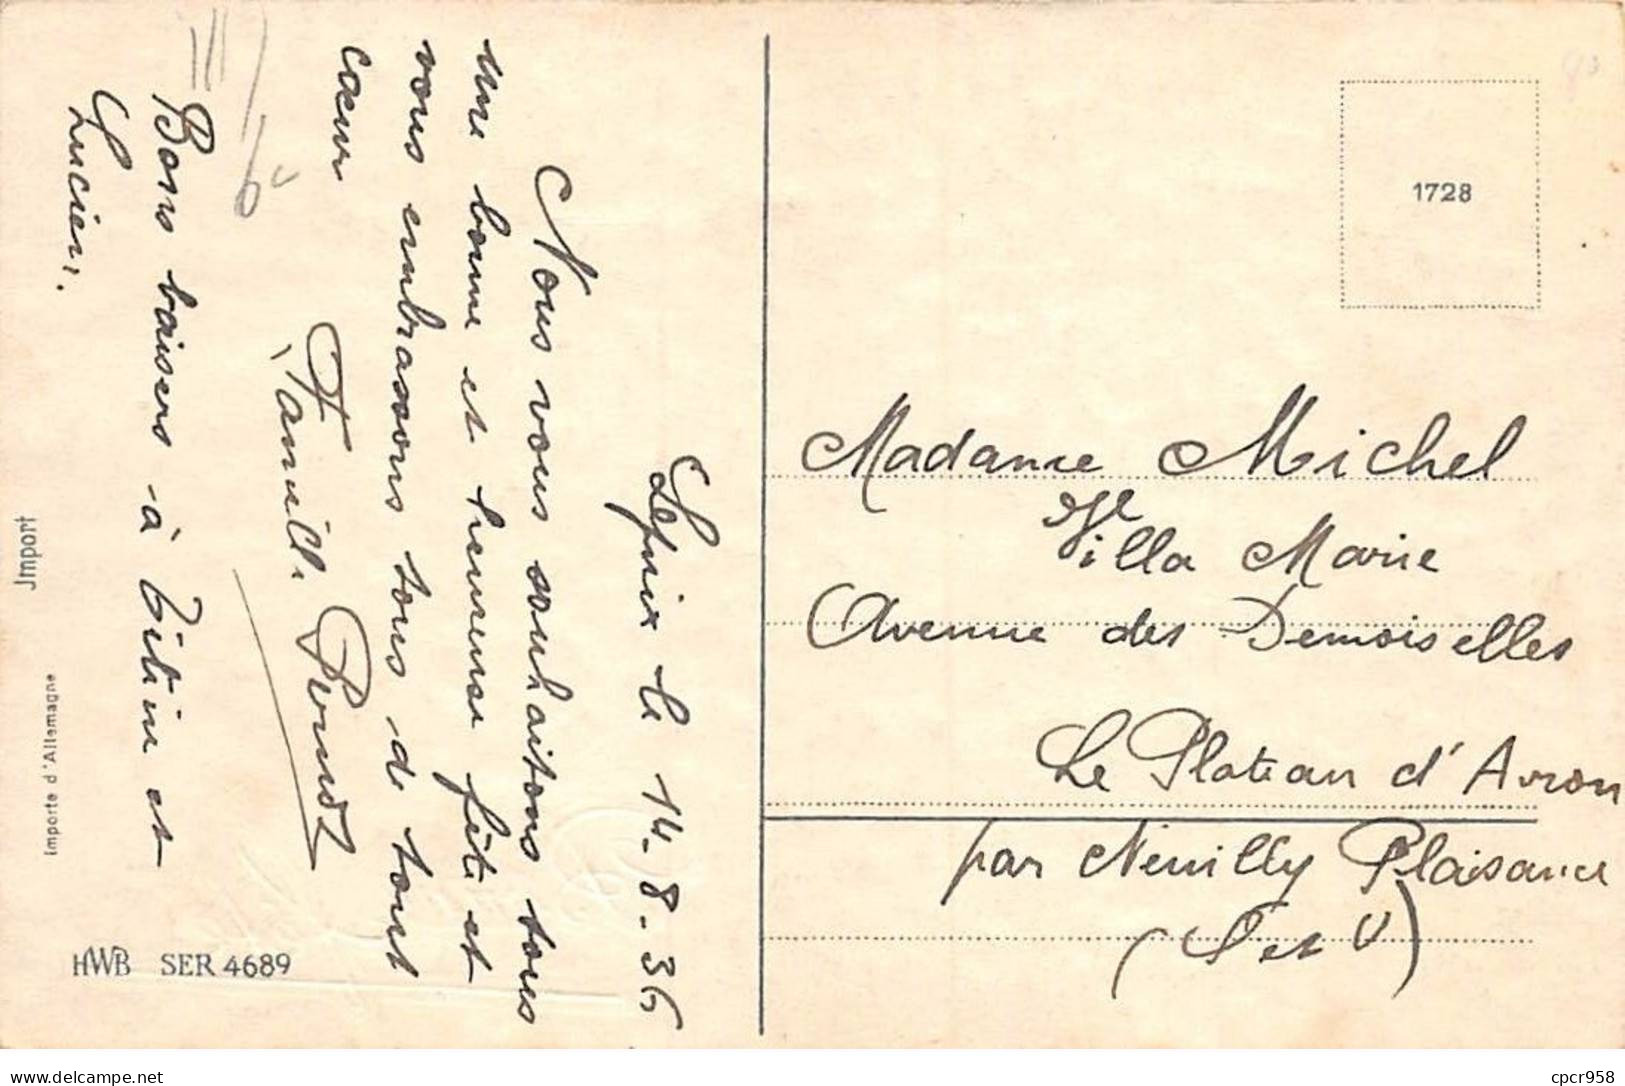 le 14-8-36
Nous vous souhaitons tous
une bonne et heureuse fête et
vous embrassons tous de tout
coeur
Famille
Bons baisers à Titine et
Lucien.
Jmport
Importe d'Allemagne
HWB SER 4689
1728
Madame Michel
Villa Marie
Avenue des Demoiselles
Le Plateau d'Avron
par Neuilly Plaisance
(S et O)
www.delcampe.net
cpcr958